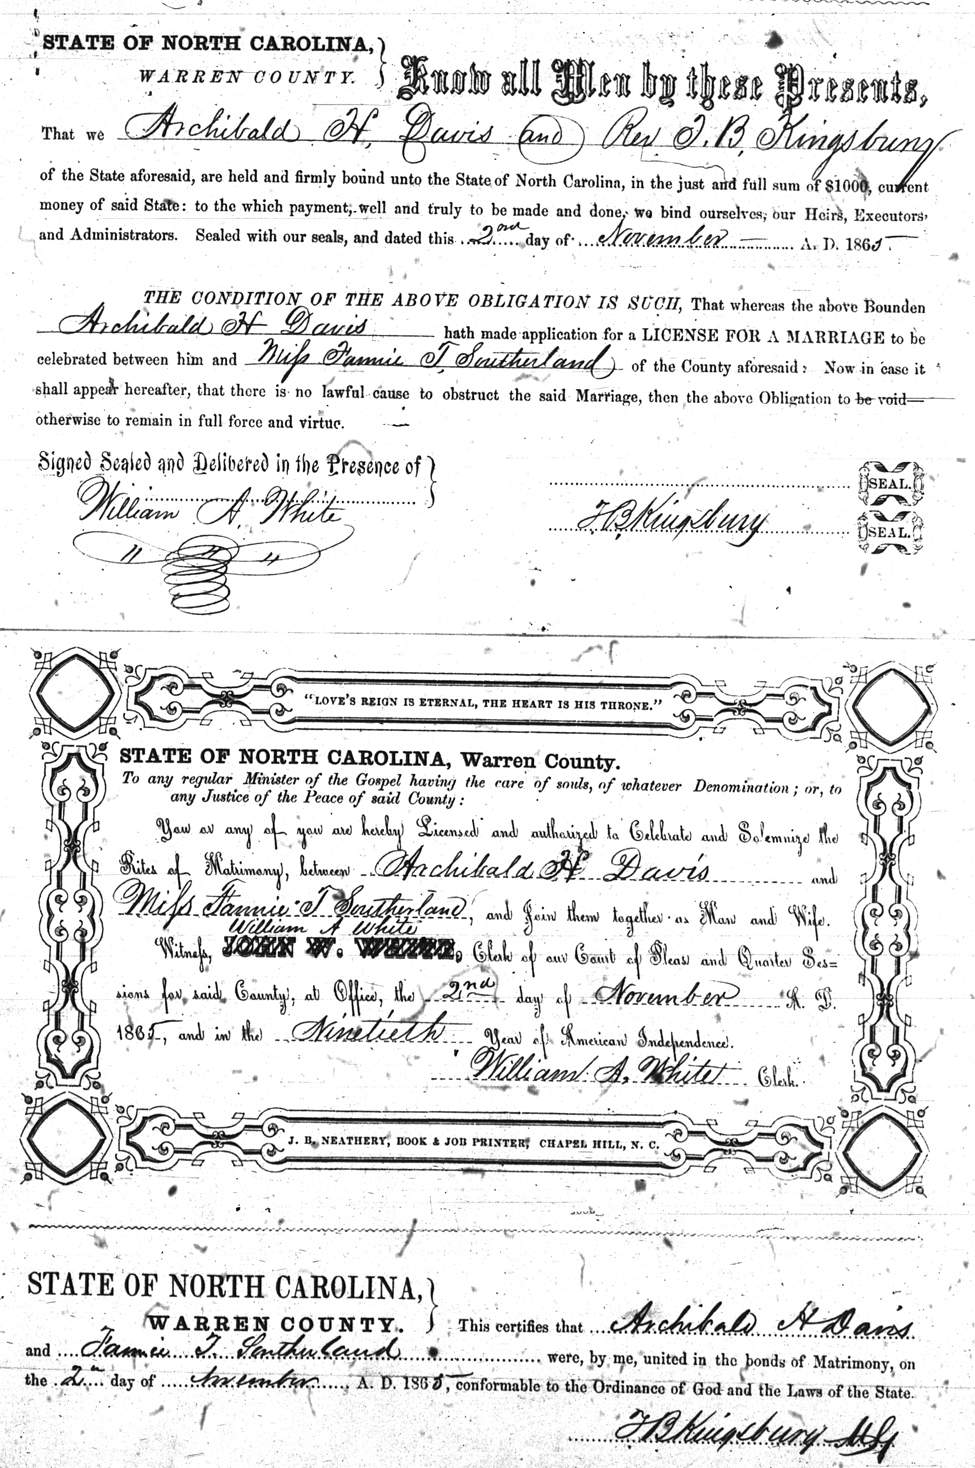 STATE OF NORTH CAROLINA,
WARREN COUNTY.
Know all Men by these Presents,
That we Archibald H. Davis and Rev T. B. Kingsbury
of the State aforesaid, are held and firmly bound unto the State of North Carolina, in the just and full sum of $1000, current
money of said State: to the which payment, well and truly to be made and done, we bind ourselves, our Heirs, Executors,
and Administrators. Sealed with our seals, and dated this 2nd day of November A. D. 1865
THE CONDITION OF THE ABOVE OBLIGATION IS SUCH, That whereas the above Bounden
Archibald H Davis hath made application for a LICENSE FOR A MARRIAGE to be
celebrated between him and Miss Fannie T. Southerland of the County aforesaid: Now in case it
shall appear hereafter, that there is no lawful cause to obstruct the said Marriage, then the above Obligation to be void—
otherwise to remain in full force and virtue.
Signed Sealed and Delibered in the Presence of
SEAL.
William A. White
T B Kingsbury SEAL.
" " "
"LOVE'S REIGN IS ETERNAL, THE HEART IS HIS THRONE."
STATE OF NORTH CAROLINA, Warren County.
To any regular Minister of the Gospel having the care of souls, of whatever Denomination; or, to
any Justice of the Peace of said County:
You or any of you are hereby Licensed and authorized to Celebrate and Solemnize the
Rites of Matrimony, between Archibald H Davis and
Miss Fannie T Southerland, and Join them together as Man and Wife.
William A White
Witness, JOHN W. WHITE, Clerk of our Court of Pleas and Quarter Ses=
sions for said County, at Office, the 2nd day of November A. D.
1865, and in the Ninetieth Year of American Independence.
William A. White Clerk.
J. B. NEATHERY, BOOK & JOB PRINTER, CHAPEL HILL, N. C.
STATE OF NORTH CAROLINA,
WARREN COUNTY.
This certifies that Archibald H Davis
and Fannie T. Southerland were, by me, united in the bonds of Matrimony, on
the 2nd day of November, A. D. 1865, conformable to the Ordinance of God and the Laws of the State.
T B Kingsbury M.G.